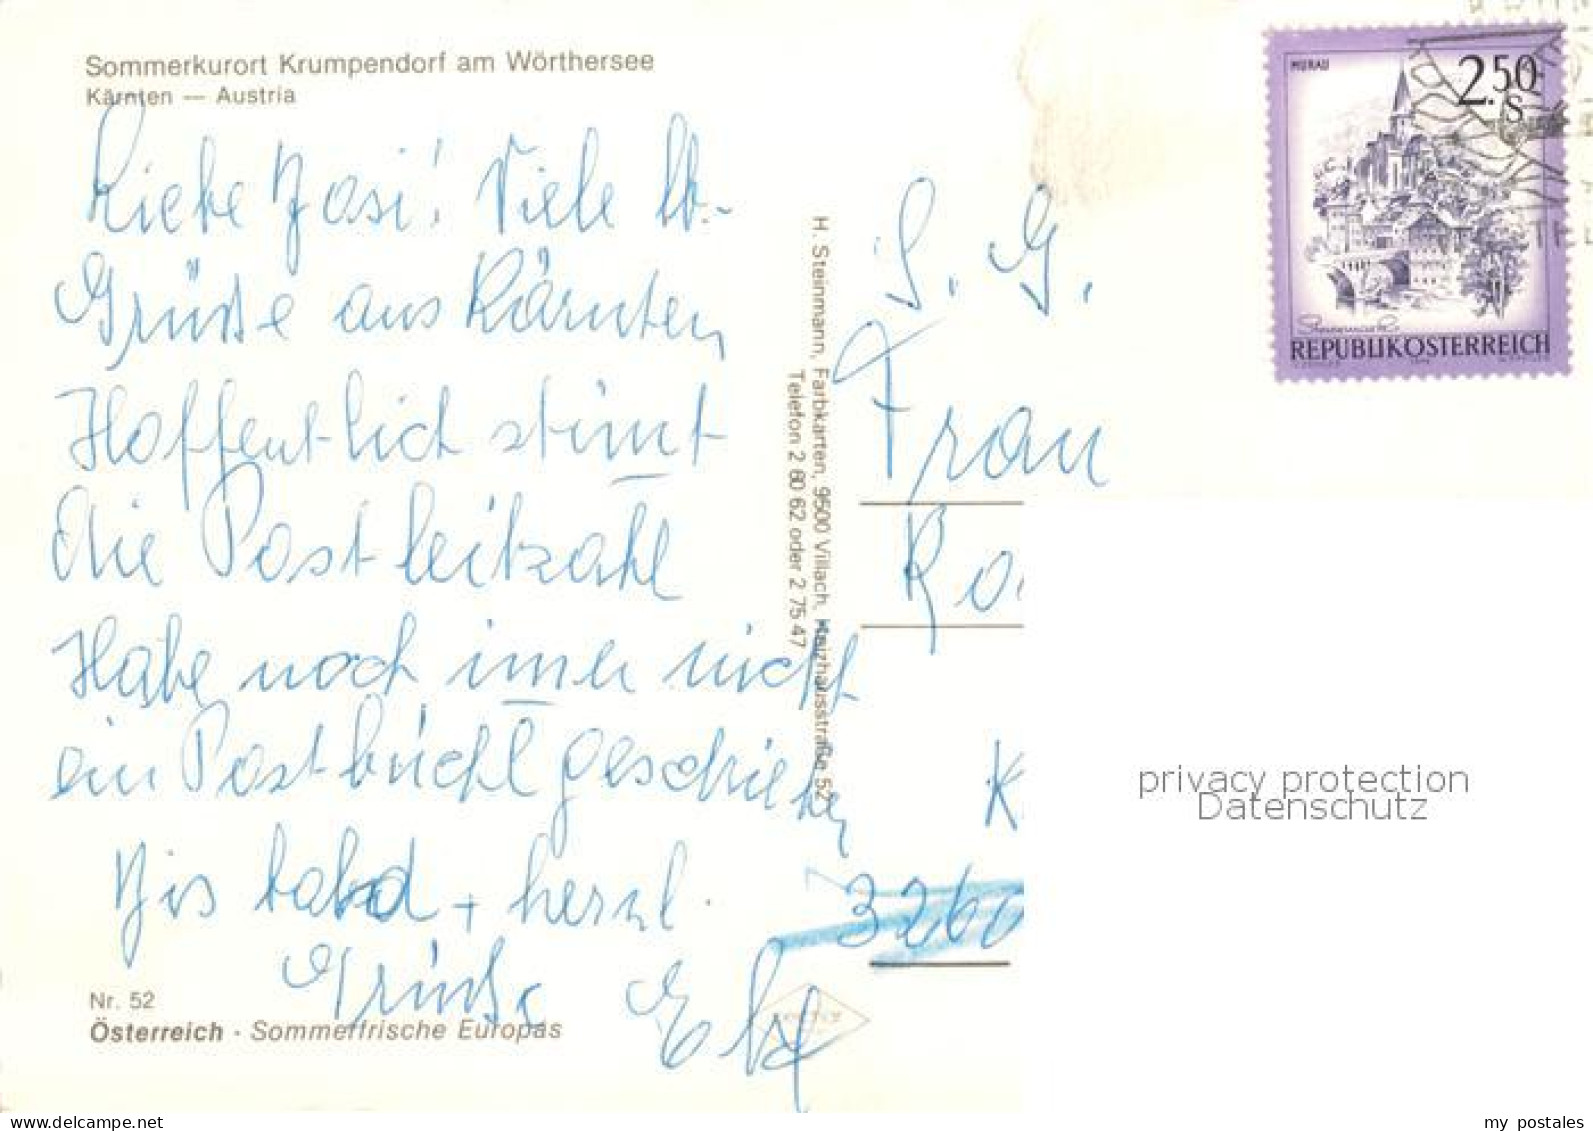 Sommerkurort Krumpendorf am Wörthersee
Kärnten — Austria
Liebe Josi! Viele lb.
Grüße aus Kärnten
Hoffentlich stimt
die Postleitzahl
Habe noch imer nicht
ein Postbüchl geschrieben
Bis bald + herzl.
Grüße
Nr. 52
Österreich · Sommerfrische Europas
H. Steinmann, Farbkarten, 9500 Villach, 52
Telefon 2 60 62 oder 2 75 47
MURAU
2.50
S
Steiermark
REPUBLIK ÖSTERREICH
S. G.
Frau
Ro
K
3260
privacy protection
Datenschutz
www.delcampe.net
my_postales